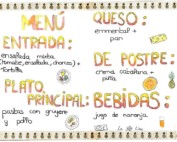 MENÚ
ENTRADA:
ensalada mixta
(tomate, ensalada, chorizo) +
Tortilla
PLATO
PRINCIPAL:
pastas con gruyere
y pollo
QUESO:
emmental +
pan
DE POSTRE:
crema catalana +
BEBIDAS:
jugo de naranja